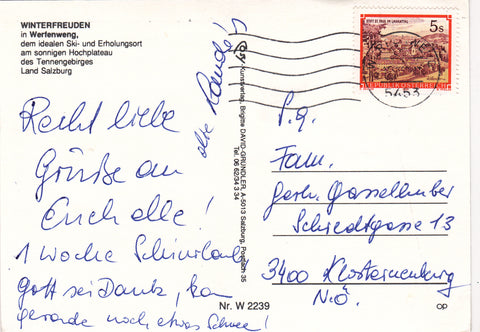 WINTERFREUDEN
in Werfenweng,
dem idealen Ski- und Erholungsort
am sonnigen Hochplateau
des Tennengebirges
Land Salzburg
Recht liebe
Grüße an
Euch alle!
1 Woche Schiurlaub
Gott sei Dank, kam
gerade noch etwas Schnee!
alte
Kunstverlag, Brigitte DAVID-GRÜNDLER, A-5013 Salzburg, Postfach 35
Tel. 06 62/34 3 34
STIFT ST. PAUL IM LAVANTTAL
5s
REPUBLIK ÖSTERREICH
5453
P.g.
Fam.
Gerh. Gasselhuber
Schiedtgasse 13
3400 Klosterneuburg
N.Ö.
Nr. W 2239
OP